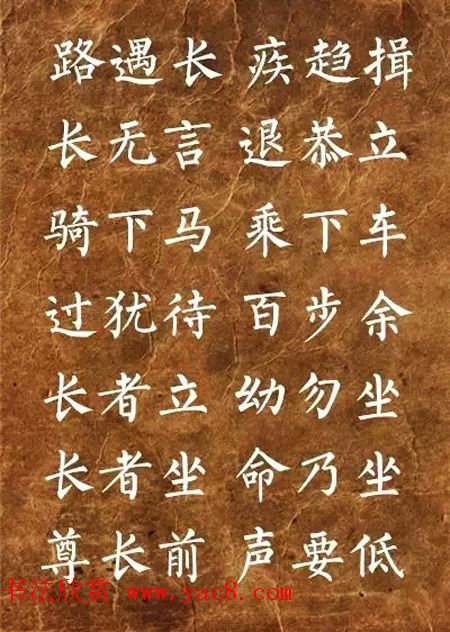 路遇长 疾趋揖
长无言 退恭立
骑下马 乘下车
过犹待 百步余
长者立 幼勿坐
长者坐 命乃坐
尊长前 声要低
书法欣赏 www.yac8.com